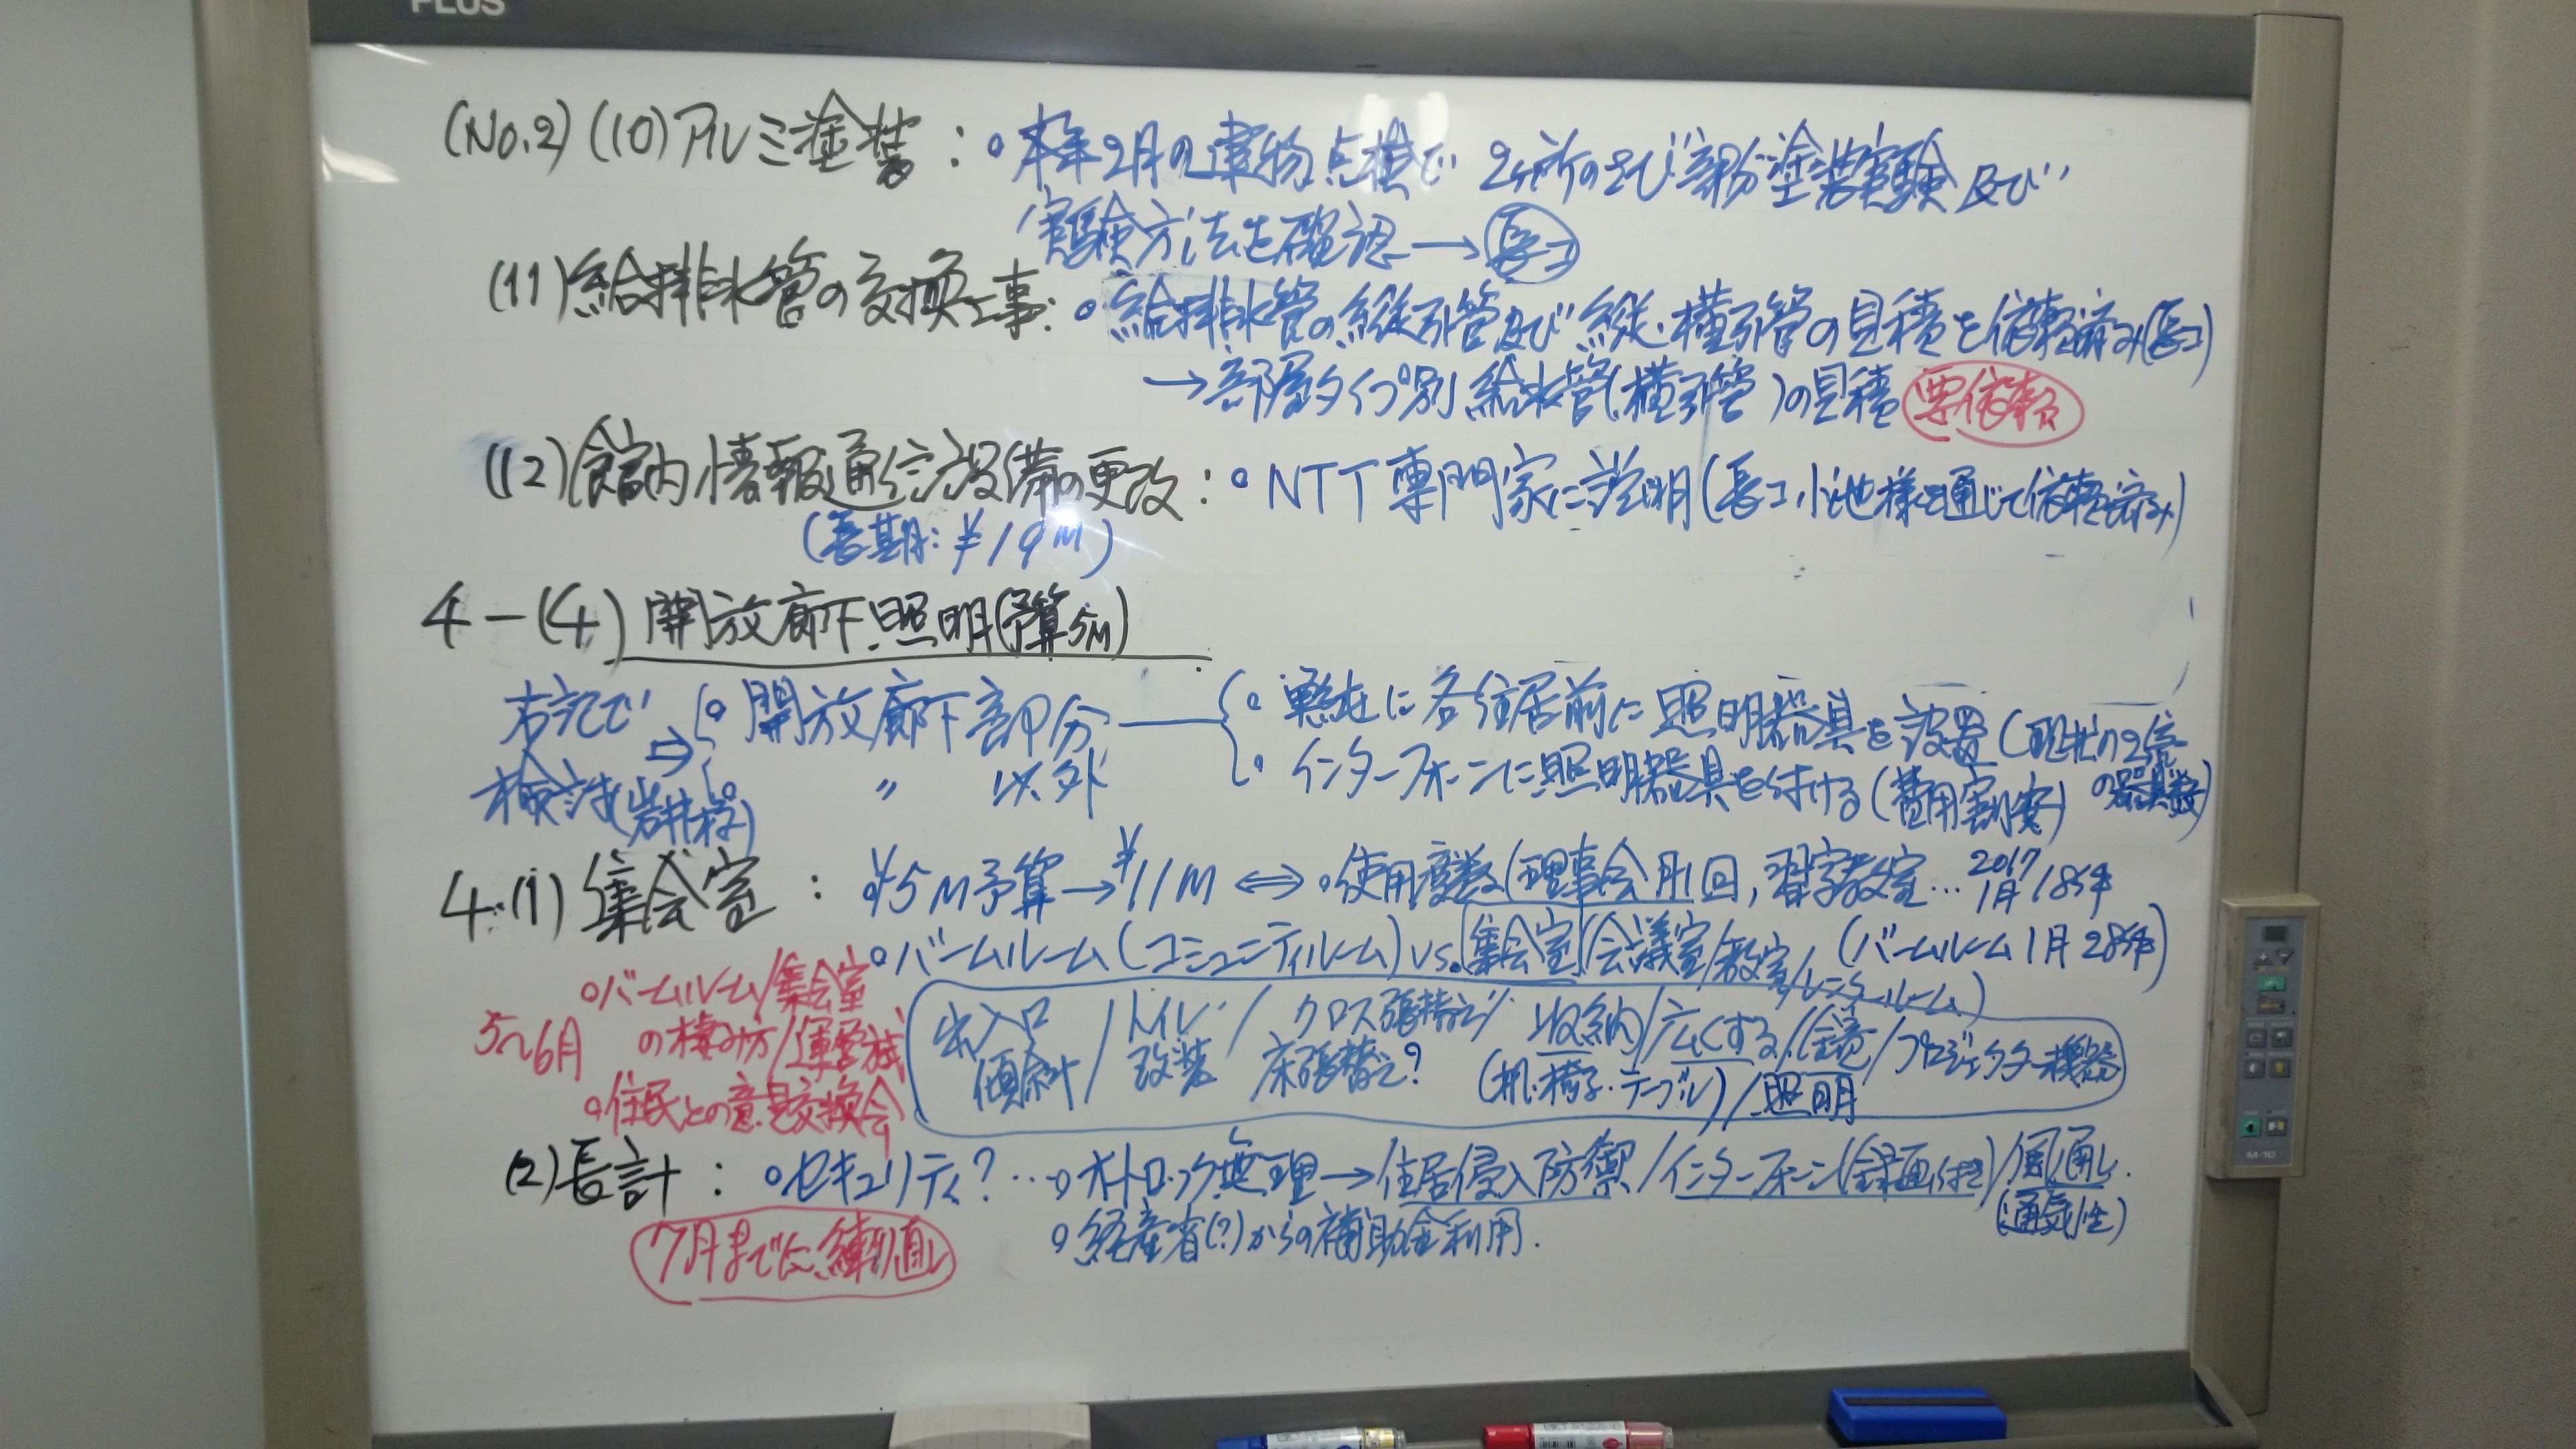 PLUS
(No.2) (10) アルミ塗装 : ○本年2月の建物点検で 2ヶ所のさび部分塗装実験 及び
実験方法を確認 → 長コ
(11) 給排水管の交換工事: ○給排水管の縦引管及び縦・横引管の見積を依頼済み(長コ)
→部屋タイプ別 給水管(横引管)の見積 要依頼
(12) 館内情報通信設備の更改 : ○NTT専門家に説明(長コ小池様を通じて依頼済み)
(長期: ¥19M)
4-(4) 開放廊下照明(予算5M)
右記で 検討(岩井様) ⇒ ○開放廊下部分
○ 〃 以外
○単純に各住居前に照明器具を設置(現状の2倍の器具数)
○インターフォーンに照明器具を付ける(費用割安)
4.(1) 集会室 : ○¥5M予算→¥11M ⇔ ○使用度数(理事会月1回, 習字教室… 2017 1月 18件
○バームルーム(コミュニティルーム) vs. 集会室/会議室/教室/レンタルルーム) (バームルーム1月28件)
5~6月 ○バームルーム/集会室
の棲み方/運営
○住民との意見交換会
出入口傾斜/トイレ改装/クロス張替え/床張替え? 収納/広くする/鏡/プロジェクター機器
(机・椅子・テーブル)/照明
(2) 長計 : ○セキュリティ? … ○オートロック無理→住居侵入防禦/インターフォーン(録画付き)/風通し.
(通気性)
○経産省(?)からの補助金利用.
7月までに練り直し
M-10